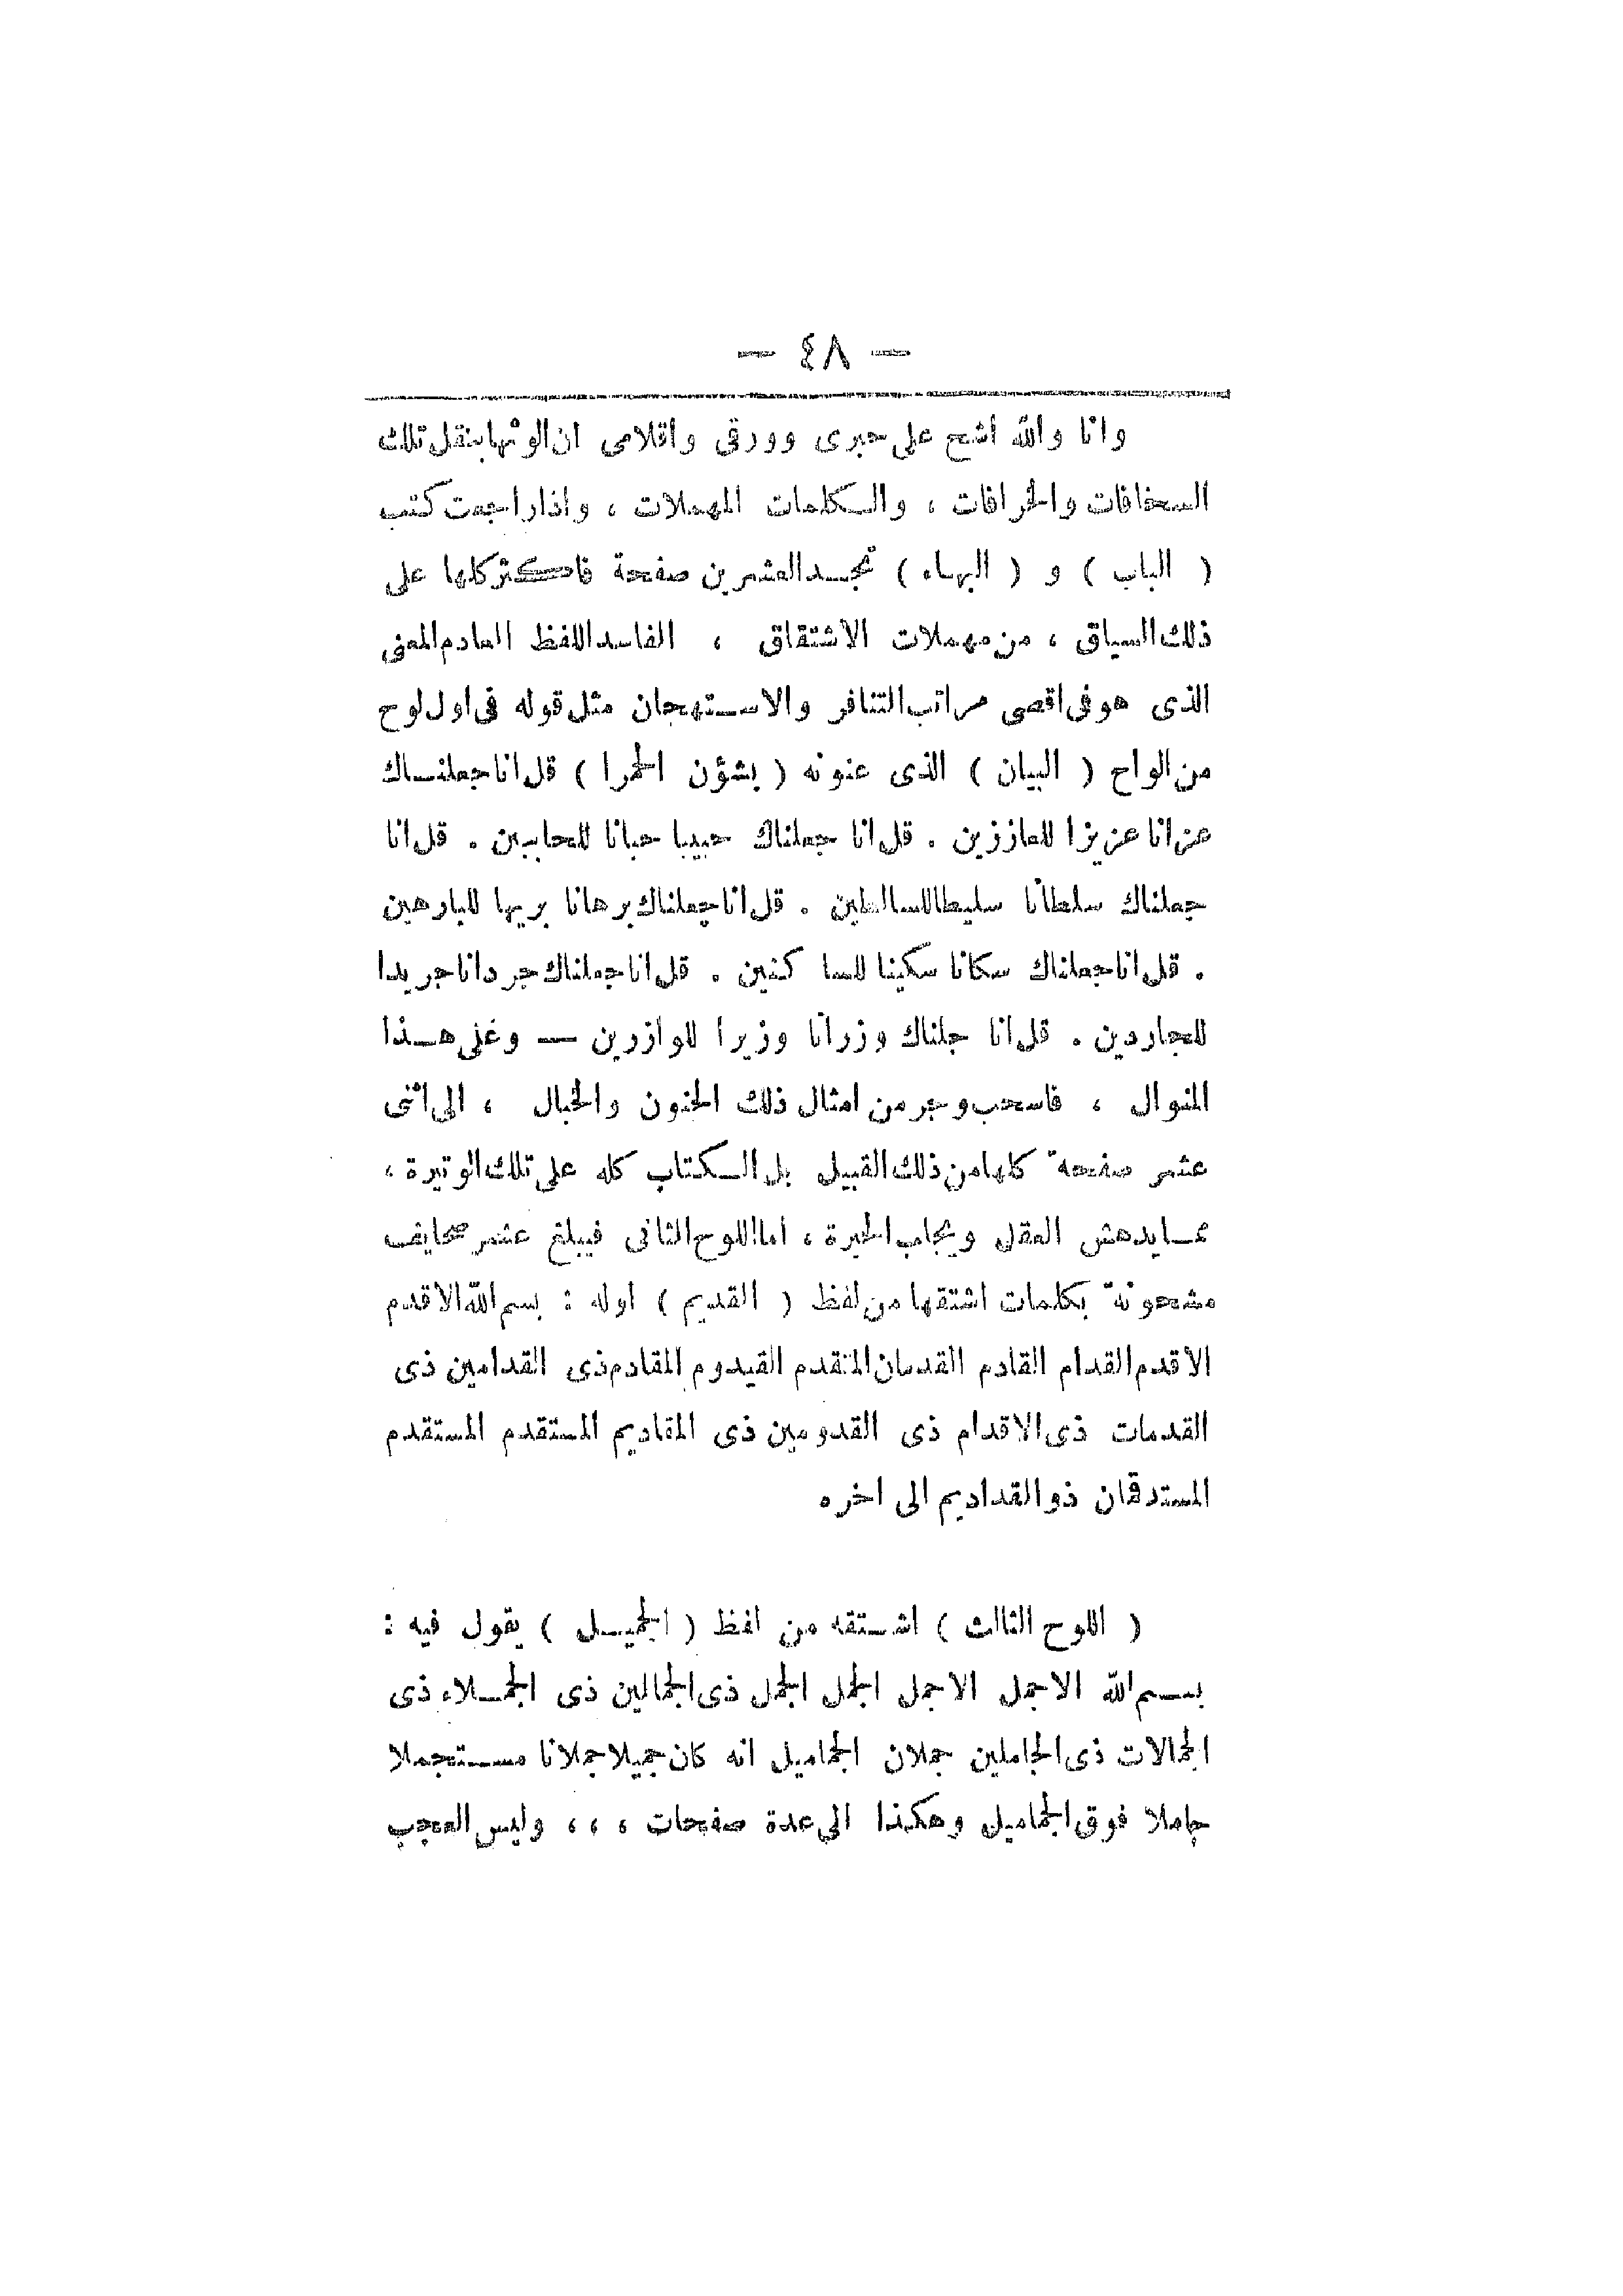 — ٤٨ —
وانا والله أشح على حبرى وورقى وأقلامى ان الوثها بنقل تلك
السخافات والخرافات ، والكلمات المهملات ، واذا راجعت كتب
( الباب ) و ( البهاء ) تجد العشرين صفحة فاكثر كلها على
ذلك السياق ، من مهملات الاشتقاق ، الفاسد اللفظ العادم المعنى
الذى هو فى اقصى مراتب التنافر والاستهجان مثل قوله فى اول لوح
من الواح ( البيان ) الذى عنونه ( بشؤن الحمرا ) قل انا جعلناك
عزانا عزيزا للعاززين . قل انا جعلناك حبيبا حبانا للحاببين . قل انا
جعلناك سلطانا سليطا للسالطين . قل انا جعلناك برهانا بريها للبارهين
. قل انا جعلناك سكانا سكينا للسا كنين . قل انا جعلناك جردانا جريدا
للجاردين . قل انا جلناك وزرانا وزيرا للوازرين — وعلى هذا
المنوال ، فاسحب وجر من امثال ذلك الجنون والخبال ، الى اثنى
عشر صفحة كلها من ذلك القبيل بل الكتاب كله على تلك الوتيرة ،
مما يدهش العقل ويجلب الحيرة ، اما اللوح الثانى فيبلغ عشر صحايف
مشحونة بكلمات اشتقها من لفظ ( القديم ) اوله : بسم الله الاقدم
الاقدم القدام القادم القدمان المتقدم القيدوم المقادم ذى القدامين ذى
القدمات ذى الاقدام ذى القدومين ذى المقاديم المستقدم المستقدم
المستدقمان ذو القداديم الى اخره
( اللوح الثالث ) اشتقه من لفظ ( الجميل ) يقول فيه :
بسم الله الاجمل الاجمل الجمل الجمل ذى الجمالين ذى الجملاء ذى
الجمالات ذى الجاملين جملان الجماميل انه كان جميلا جملانا مستجملا
جاملا فوق الجماميل وهكذا الى عدة صفحات ، ، ، وليس العجب